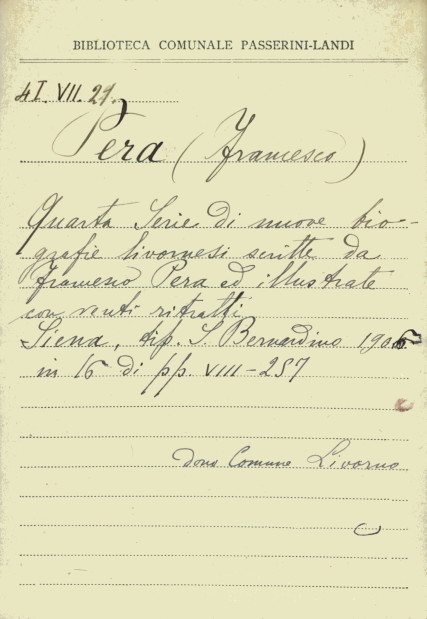 BIBLIOTECA COMUNALE PASSERINI-LANDI
4I. VII. 21.
Pera (Francesco)
Quarta Serie di nuove bio-
grafie livornesi scritte da
Francesco Pera ed illustrate
con venti ritratti
Siena, tip. S. Bernardino 1906
in 16 di pp. VIII-257
dono Comune Livorno